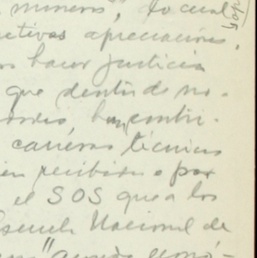 mineros", lo cual
etivas apreciaciones.
hacer justicia
que dentro de no-
han contri-
carreras técnicas
recibido o por
el SOS que a los
Escuela Nacional de
"ayuda econó-